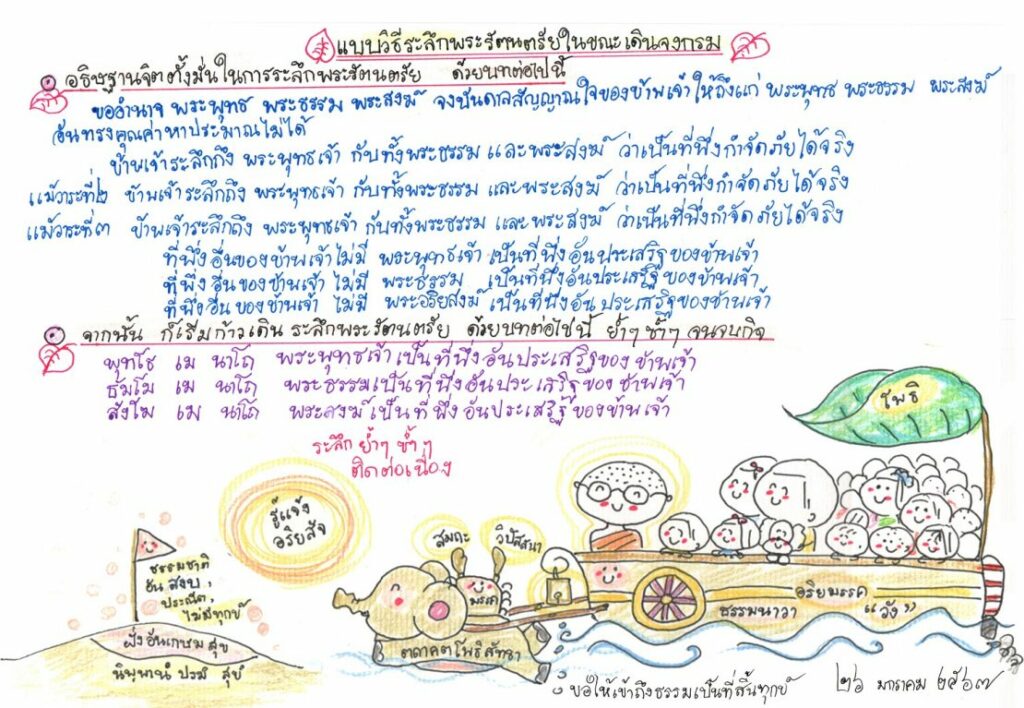 แบบวิธีระลึกพระรัตนตรัยในขณะเดินจงกรม
อธิษฐานจิตตั้งมั่นในการระลึกพระรัตนตรัย ด้วยบทต่อไปนี้
ขออำนาจ พระพุทธ พระธรรม พระสงฆ์ จงบันดาลสัญญาณใจของข้าพเจ้าให้ถึงแก่ พระพุทธ พระธรรม พระสงฆ์
อันทรงคุณค่าหาประมาณไม่ได้
ข้าพเจ้าระลึกถึง พระพุทธเจ้า กับทั้งพระธรรม และพระสงฆ์ ว่าเป็นที่พึ่งกำจัดภัยได้จริง
แม้วาระที่๒ ข้าพเจ้าระลึกถึง พระพุทธเจ้า กับทั้งพระธรรม และพระสงฆ์ ว่าเป็นที่พึ่งกำจัดภัยได้จริง
แม้วาระที่๓ ข้าพเจ้าระลึกถึง พระพุทธเจ้า กับทั้งพระธรรม และพระสงฆ์ ว่าเป็นที่พึ่งกำจัดภัยได้จริง
ที่พึ่งอื่นของข้าพเจ้าไม่มี พระพุทธเจ้า เป็นที่พึ่งอันประเสริฐของข้าพเจ้า
ที่พึ่งอื่นของข้าพเจ้า ไม่มี พระธรรม เป็นที่พึ่งอันประเสริฐของข้าพเจ้า
ที่พึ่งอื่นของข้าพเจ้า ไม่มี พระอริยสงฆ์ เป็นที่พึ่งอันประเสริฐของข้าพเจ้า
จากนั้น ก็เริ่มก้าวเดิน ระลึกพระรัตนตรัย ด้วยบทต่อไปนี้ ย้ำๆ ซ้ำๆ จนจบกิจ
พุทโธ เม นาโถ พระพุทธเจ้าเป็นที่พึ่งอันประเสริฐของข้าพเจ้า
ธัมโม เม นาโถ พระธรรมเป็นที่พึ่งอันประเสริฐของข้าพเจ้า
สังโฆ เม นาโถ พระสงฆ์เป็นที่พึ่งอันประเสริฐของข้าพเจ้า
ระลึก ย้ำๆ ซ้ำๆ
ติดต่อเนื่อง
โพธิ
รู้แจ้ง
อริยสัจ
สมถะ วิปัสสนา
มรรค
ธรรมชาติ
อันสงบ,
ประณีต,
ไม่มีทุกข์
ฝั่งอันเกษมสุข
นิพฺพานํ ปรมํ สุขํ
ตถาคตโพธิสัทธา
อริยมรรค
ธรรมนาวา "วัง"
ขอให้เข้าถึงธรรมเป็นที่สิ้นทุกข์
๒๖ มกราคม ๒๕๖๗